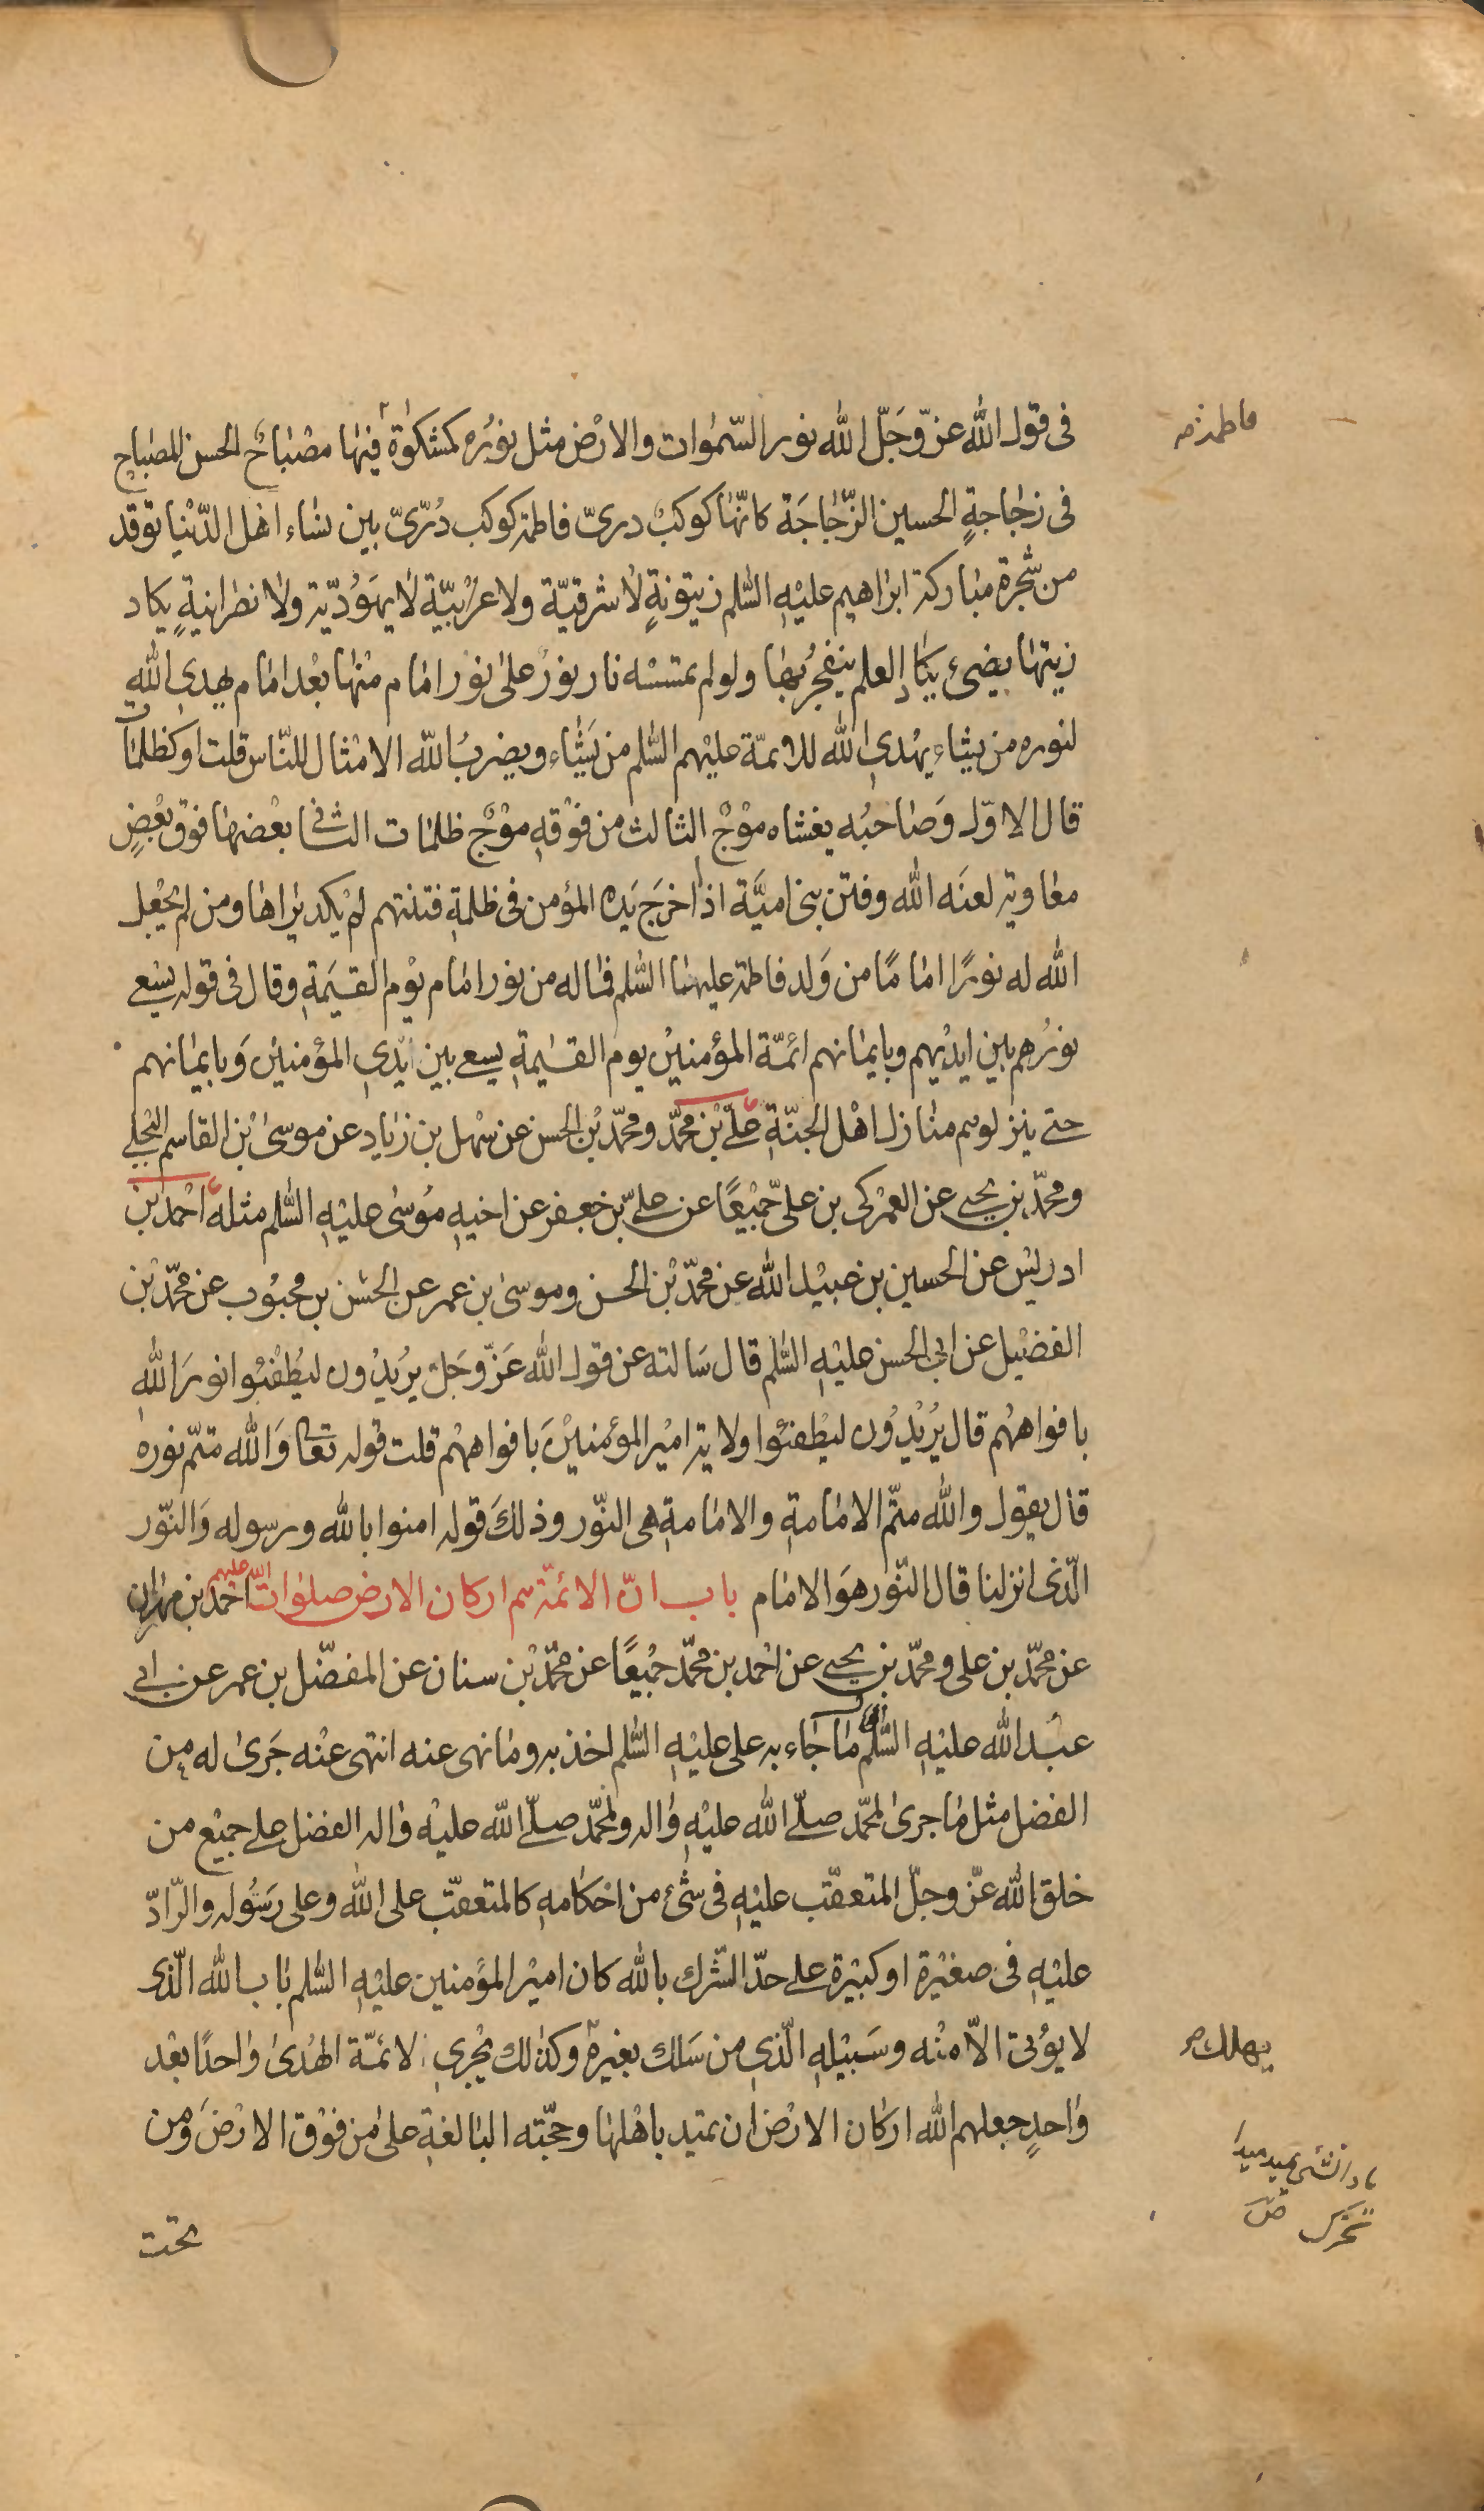 فى قول الله عزّ وَجَلّ الله نور السّمٰوات والارْض مثل نوُره كمشكوٰة فيهٰا مصْبٰاحٌ الحسن المصْباح
فاطمة صح
فى زجٰاجةٍ الحسين الزّجٰاجَة كانّهٰا كوكبٌ درىّ فاطمة كوكب دُرّىّ بين نسٰاء اهل الدّنْيٰا توقد
من شجرة مبٰاركة ابرٰاهيم عليْهِ السّٰلم زيتونةٍ لٰا شرقيّة ولا غرْبيّة لٰا يهَوُديّة ولٰا نصْرانيةٍ يكاد
زيتهٰا يضىء يكٰاد العلم ينفجرُ بهٰا ولو لم تمسسْه نار نورٌ علىٰ نور امٰام منْهٰا بعْد امٰام يهدى الله
لنوره من يشٰاء يهْدى الله للائمّة عليْهم السّٰلم من يَشٰاء ويضربُ اللّه الامْثال للنّاس قلت او كظلمٰات
قال الاوّل وَصٰاحبُه يغشاه موْجٌ الثالث من فوْقهِ موْجٌ ظلمٰات الثٰانى بعْضهٰا فوق بعْضٍ
معٰاوية لعنَه الله وفتن بنى اميَّة اذٰا اخرَجَ يَده المؤمن فى ظلمةِ فتنتهم لمْ يكد يرٰاهٰا ومن لم يجْعل
الله له نورًا امٰامًا من وَلد فاطمة عليهٰا السّٰلم فمٰا له من نور امٰام يوْم القيٰمَةِ وقال فى قوله يسْعى
نورُهم بين ايدْيهم وبايمٰانهم ائمّة المؤْمنينْ يوم القيٰمةِ يسعى بين ايْدِى المؤْمنين وَبايمٰانهم
حتى ينزلوهم منٰازل اهْل الجنّةِ علىّ بْن محمّد ومحمّد بْن الحسن عن سهْل بن زيٰاد عن موسىٰ بْن القاسم البجلى
ومحمّد بن يحيى عن العمْركى بن علىّ جميْعًا عن علىّ بن جعفر عن اخيهِ مُوسىٰ عليْهِ السّٰلم مثله احْمد بْن
ادريس عن الحسين بن عبيْد الله عن محمّد بْن الحسن وموسىٰ بن عمر عن الحسن بن محبُوب عن محمّد بْن
الفضيْل عن ابى الحسن عليْهِ السّٰلم قال سَالته عن قول الله عَزّ وجَلّ يرُيدُون ليُطْفئوا نورَ اللّهِ
بافوٰاههُم قال يُريْدُون ليُطْفئوا ولاية اميْر المؤمنيْنَ بافوٰاههْم قلت قوله تعٰالى وَالله متمّ نوره
قال يقول والله متمّ الامٰامةِ والامٰامةِ هى النّور وذلكَ قوله امنوا باللّه ورسوله وَالنّور
الّذى انزلنا قال النّور هوَ الامٰام باب انّ الائمّة هم اركان الارض صلوٰات الله عليهم احْمد بن مهرٰان
عن محمّد بن على ومحمّد بن يحيى عن احْمد بن محمّد جميْعًا عن محمّد بْن سنان عن المفضّل بن عمر عن ابى
عبْد اللّه عليْهِ السّٰلم قال مٰا جٰاء به على عليْهِ السّٰلم اخذ به ومٰا نهى عنه انتهى عنْه جَرىٰ له مِن
الفضل مثل مٰا جرىٰ لمحمّد صلّى الله عليْهِ وٰاله ولمحمّد صلّى اللّه عليْه وٰاله الفضل على جميْع من
خلق اللّه عزّ وجلّ المتعقّب عليْهِ فى شىْء من احْكامهِ كالمتعقّب على اللّه وعلى رَسُوله والرّادّ
عليْهِ فى صغيْرة او كبيْرة على حدّ الشّرك باللّه كان اميْر المؤمنين عليْهِ السّٰلم بٰاب اللّه الّذى
لا يؤُتى الاّ منْه وسَبيْلهِ الّذى من سَلك بغيرهٖ وكذلك يجْرى لائمّة الهُدىٰ وٰاحدًا بعْد
يهلك صح
وٰاحدٍ جعلهم اللّه اركان الارْض ان تميد باهْلهٰا وحجّته البٰالغةِ علىٰ من فوْق الارْضَ وَمن
تحرّك ص
تحت